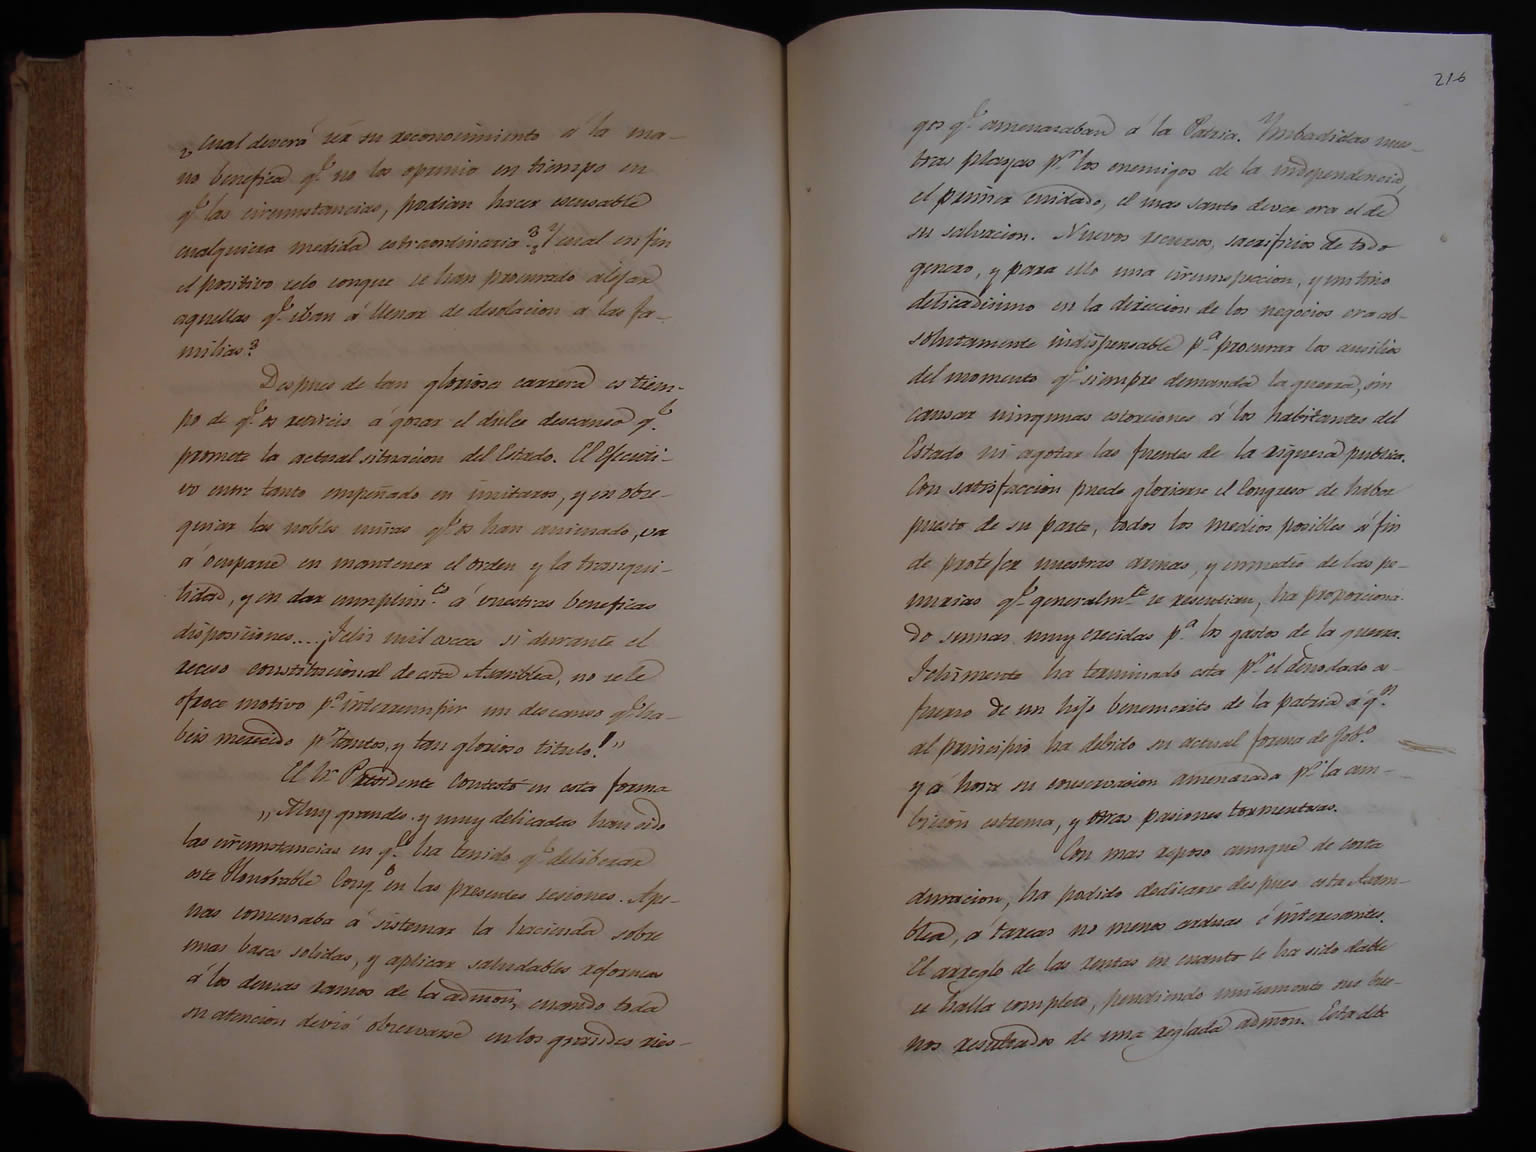 ¿cual deverá ser su reconocimiento á la ma-
no benefica q.e no los oprimio en tiempo en
q.e las circunstancias, podian hacer escusable
cualquiera medida estraordinaria? ¿Y cual en fin
el positivo celo conque se han procurado alejar
aquellas q.e iban á llenar de desolacion á las fa-
milias?
Despues de tan gloriosa carrera es tiem-
po de q.e os retireis á gozar el dulce descanso q.e
promete la actual situacion del Estado. El Ejecuti-
vo entre tanto empeñado en imitaros, y en obse-
quiar las nobles miras q.e os han animado, va
á ocuparse en mantener el orden y la tranqui-
lidad, y en dar cumplim.to á vuestras beneficas
disposiciones.... ¡Felis mil veces si durante el
receso constitucional de esta Asamblea, no se le
ofrece motivo p.a interrumpir un descanso q.e ha-
beis merecido p.r tantos, y tan glorioso titulo!"
El Sr. Presidente contestó en esta forma
"Muy grandes y muy delicadas han sido
las circunstancias en q.e ha tenido q.e deliberar
este Honorable Cong.o en las presentes sesiones. Ape-
nas comenzaba á sistemar la hacienda sobre
unas bases solidas, y aplicar saludables reformas
á los demas ramos de la admon, cuando toda
su atencion devió observarse en los grandes ries-
216
gos q.e amenazaban á la Patria. Ymbadidas nues-
tras plazas p.r los enemigos de la independencia,
el primer cuidado, el mas santo dever era el de
su salvacion. Nuevos recursos, sacrificios de todo
genero, y para ello una circunspeccion, y un tino
delicadisimo en la direccion de los negocios era ab-
solutamente indispensable p.a procurar los ausilios
del momento q.e siempre demanda la guerra, sin
causar ningunas estorciones á los habitantes del
Estado ni agotar las fuentes de la riqueza publica.
Con satisfaccion puede gloriarse el Congreso de haber
puesto de su parte, todos los medios posibles á fin
de protejer nuestras armas, y enmedio de las pe-
nurias q.e generalm.te se resentian, ha proporciona-
do sumas muy crecidas p.a los gastos de la guerra.
Felismente ha terminado esta p.r el denodado es-
fuerzo de un hijo benemerito de la patria á q.n
al principio ha debido su actual forma de Gob.o
y á hora su conservacion amenazada p.r la am-
bicion estrema, y otras pasiones tormentosas.
Con mas reposo aunque de corta
duracion, ha podido dedicarse despues esta Asam-
blea, á tareas no menos arduas é interesantes.
El arreglo de las rentas en cuanto le ha sido dable
se halla completo, pendiendo unicamente sus bue-
nos resultados de una reglada admon. Establ